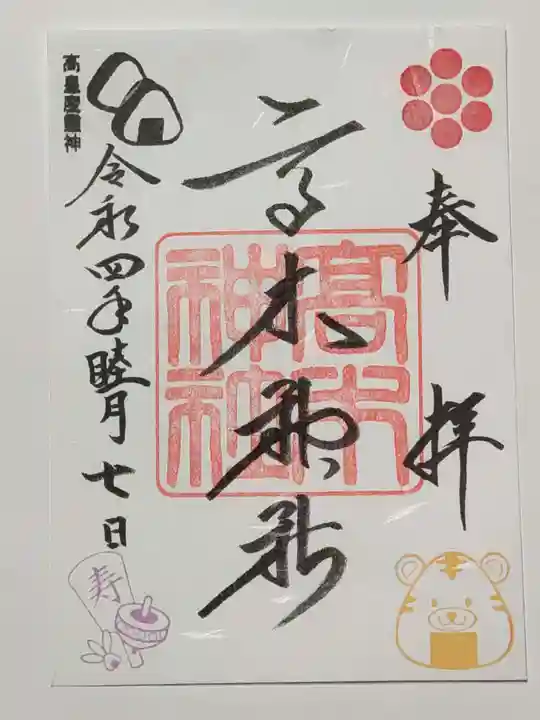 奉拝
髙木神社
高木神社
高皇産靈神
令和四年睦月七日
寿